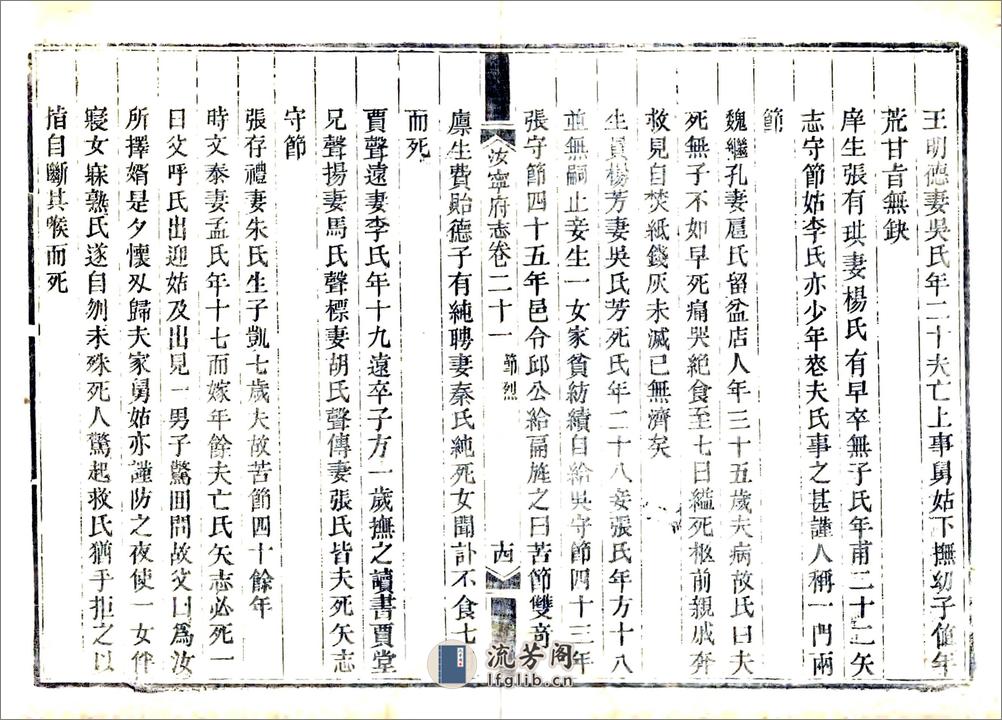 王明德妻吳氏年二十夫亡上事舅姑下撫幼子值年
荒甘旨無缺
庠生張有珙妻楊氏有早卒無子氏年甫二十二矢
志守節姑李氏亦少年喪夫氏事之甚謹人稱一門兩
節
魏繼孔妻扈氏留盆店人年三十五歲夫病故氏曰夫
死無子不如早死痛哭絕食至七日縊死柩前親戚奔
救見自焚紙錢灰未滅已無濟矣
生員楊芳妻吳氏芳死氏年二十八妾張氏年方十八
並無嗣止妾生一女家貧紡績自給吳守節四十三年
張守節四十五年邑令邱公給扁旌之曰苦節雙奇
汝寧府志卷二十一 節烈 十四
廩生費貽德子有純聘妻秦氏純死女聞訃不食七日
而死
賈聲遠妻李氏年十九遠卒子方一歲撫之讀書賈堂
兄聲揚妻馬氏聲標妻胡氏聲傳妻張氏皆夫死矢志
守節
張存禮妻朱氏生子凱七歲夫故苦節四十餘年
時文泰妻孟氏年十七而嫁年餘夫亡氏矢志必死一
日父呼氏出迎姑及出見一男子驚回問故父曰為汝
所擇婿是夕懷刃歸夫家舅姑亦謹防之夜使一女伴
寢女寐熟氏遂自刎未殊死人驚起救氏猶手拒之以
指自斷其喉而死
流芳阁
lfglib.cn